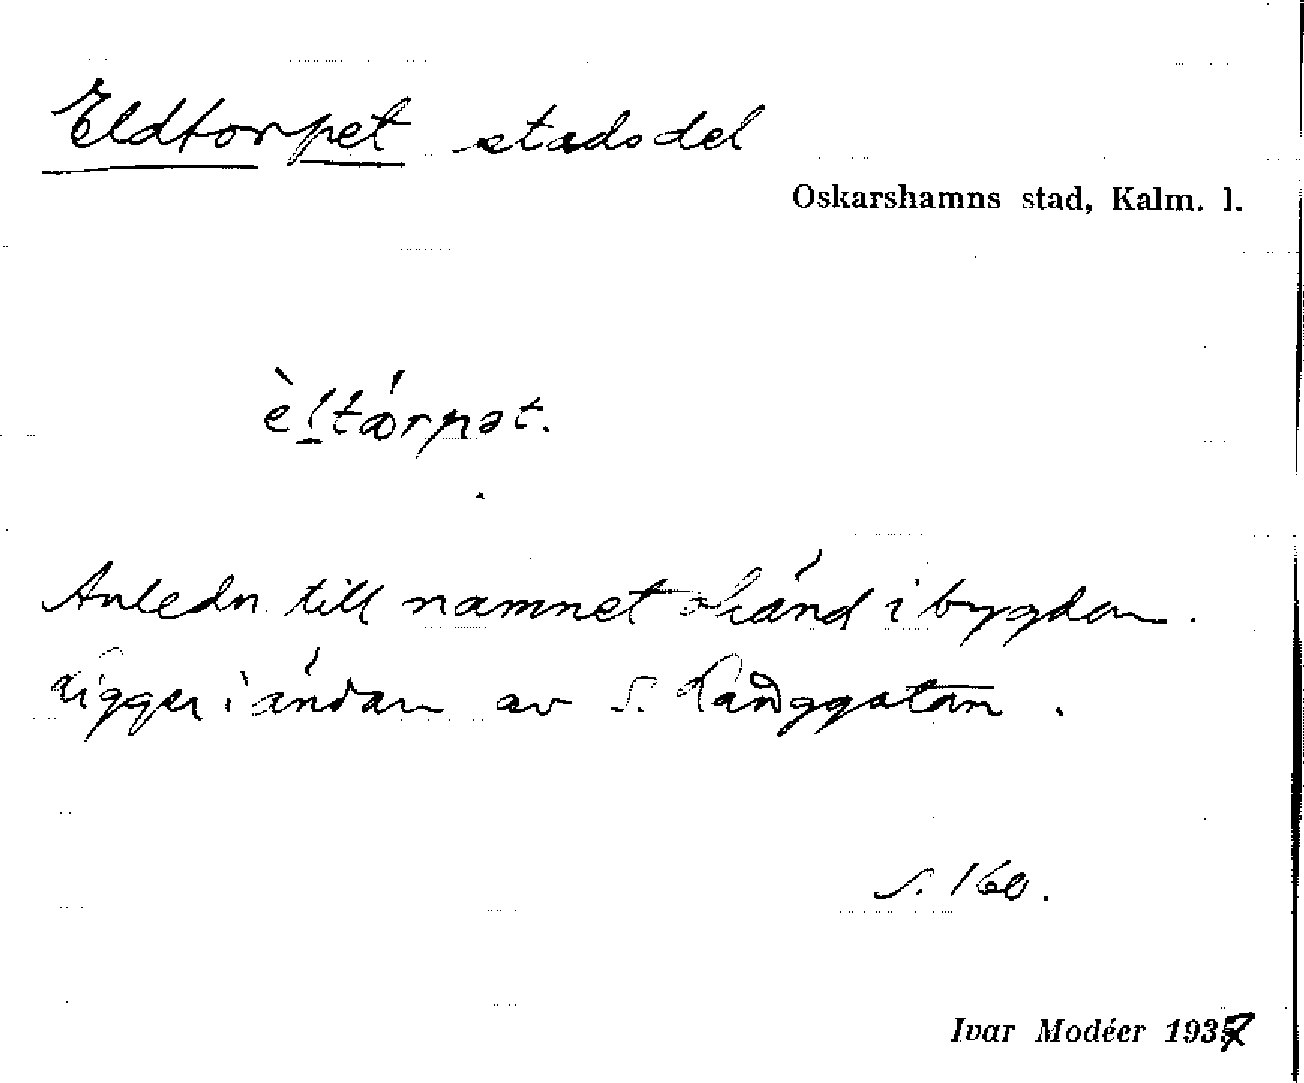 Eldtorpet stadsdel
Oskarshamns stad, Kalm. l.
èltórpət.
Anledn till namnet okänd i bygden.
Ligger i ändan av S. Långgatan.
S. 160.
Ivar Modéer 1937